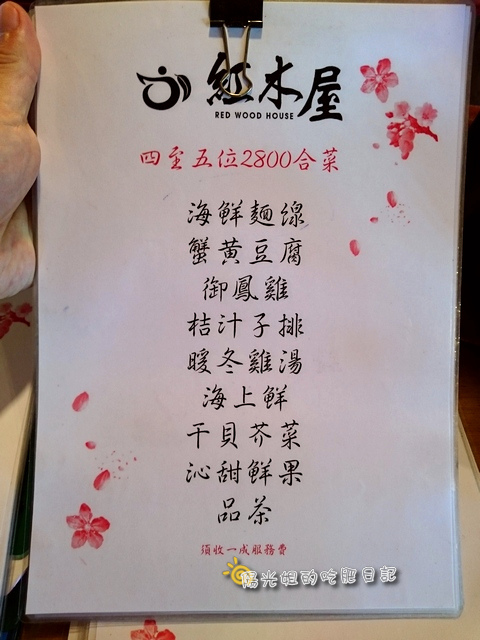 紅木屋
RED WOOD HOUSE
四至五位2800合菜
海鮮麵線
蟹黃豆腐
御鳳雞
桔汁子排
暖冬雞湯
海上鮮
干貝芥菜
沁甜鮮果
品茶
須收一成服務費
陽光姐的吃肥日記